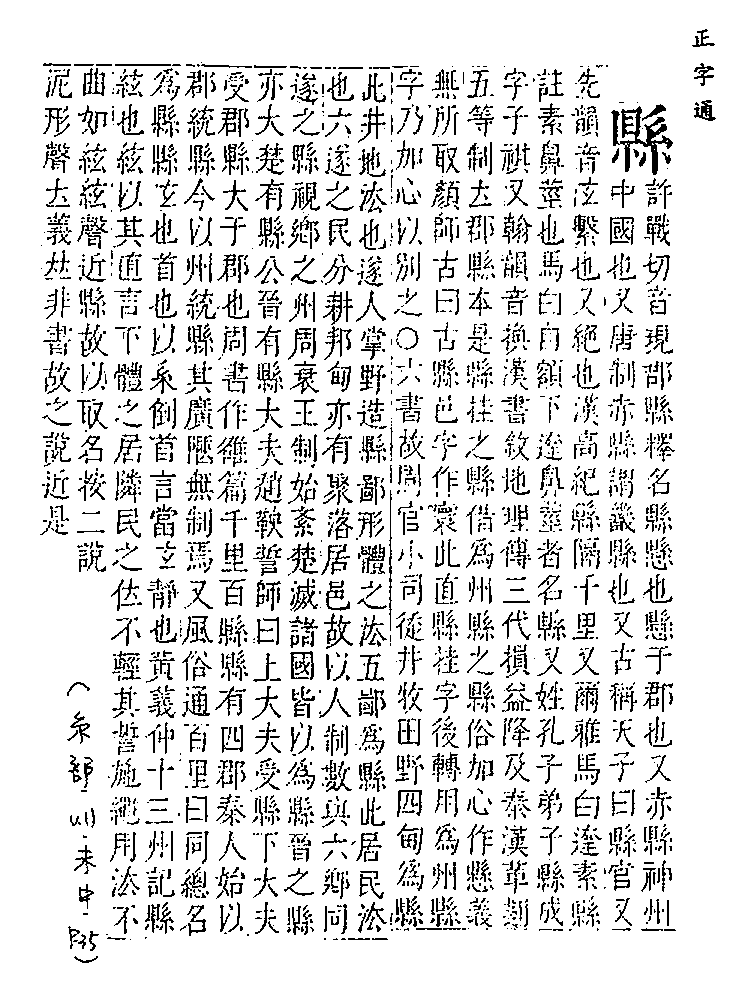 正字通
縣
許戰切音現郡縣釋名縣懸也懸于郡也又赤縣神州
中國也又唐制赤縣謂畿縣也又古稱天子曰縣官又
先韻音玄繫也又絕也漢高紀縣隔千里又爾雅馬白達素縣
註素鼻莖也馬白自額下達鼻莖者名縣又姓孔子弟子縣成
字子祺又翰韻音換漢書敘地理傳三代損益降及秦漢革剗
五等制立郡縣本是縣挂之縣借為州縣之縣俗加心作懸義
無所取顏師古曰古縣邑字作寰此直縣挂字後轉用為州縣
字乃加心以別之○六書故周官小司徒井牧田野四甸為縣
此井地法也遂人掌野造縣鄙形體之法五鄙為縣此居民法
也六遂之民分耕邦甸亦有聚落居邑故以人制數與六鄉同
遂之縣視鄉之州周衰王制始紊楚滅諸國皆以為縣晉之縣
亦大楚有縣公晉有縣大夫趙鞅誓師曰上大夫受縣下大夫
受郡縣大于郡也周書作雒篇千里百縣縣有四郡秦人始以
郡統縣今以州統縣其廣陿無制焉又風俗通百里曰同總名
為縣縣玄也首也以系倒首言當玄靜也黃義仲十三州記縣
絃也絃以其直言下體之居隣民之位不輕其誓施繩用法不
曲如絃絃聲近縣故以取名按二說
泥形聲立義𠀤非書故之說近是
(糸部 未中 P35)